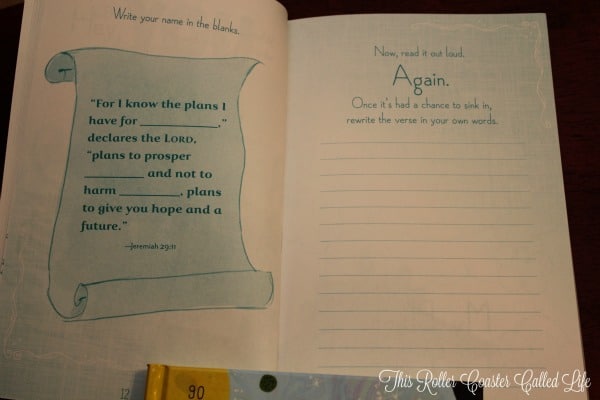 Write your name in the blanks.
"For I know the plans I
have for ____________,"
declares the LORD,
"plans to prosper
_________ and not to
harm _________, plans
to give you hope and a
future."
—Jeremiah 29:11
Now, read it out loud.
Again.
Once it's had a chance to sink in,
rewrite the verse in your own words.
12
90
This Roller Coaster Called Life